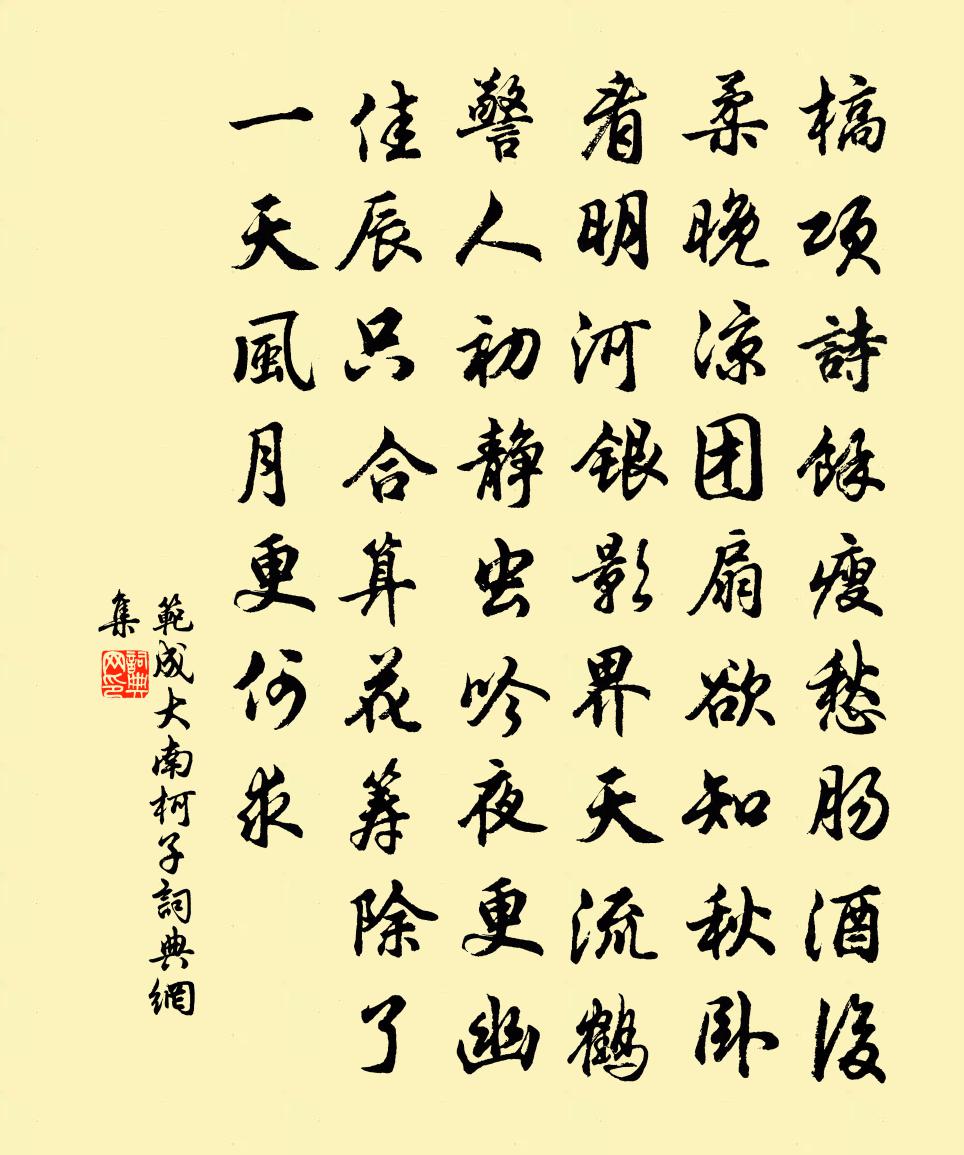 槁項詩餘瘦愁肠酒後
柔晚涼团扇欲知秋卧
看明河銀影界天流鶴
警人初静虫吟夜更幽
佳辰只合算花筹除了
一天風月更何求
範成大南柯子詞典網
集
詞典
网印